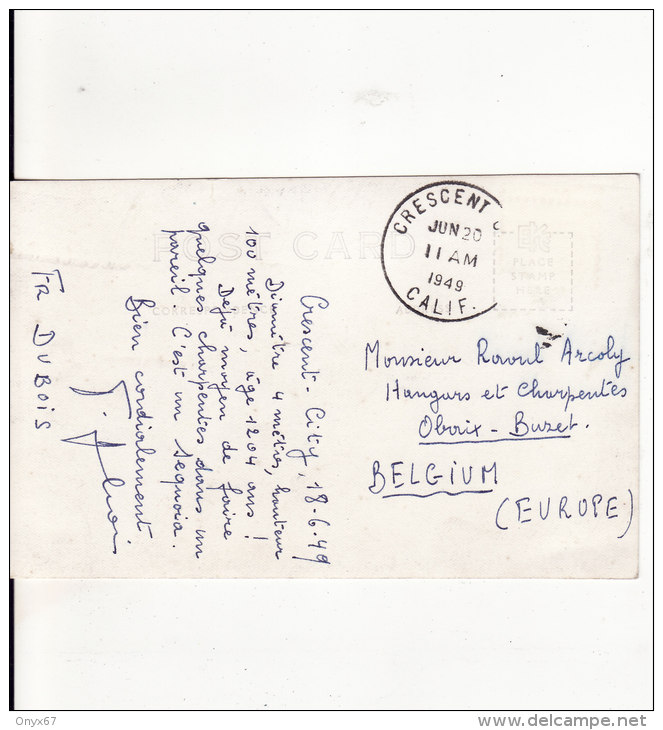 Crescent-City, 18-6-49
Diamètre 4 mètres, hauteur
100 mètres, âge 1204 ans !
Déjà moyen de faire
quelques charpentes dans un
pareil. C'est un Sequoia.
Bien cordialement
Fr DUBOIS
POST CARD
CRESCENT
JUN 20
11 AM
1949
CALIF.
PLACE
STAMP
HERE
Monsieur Raoul Arcoly
Hangars et Charpentes
Obaix - Buzet.
BELGIUM
(EUROPE)
Onyx67
delcampe.net